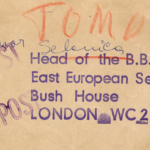 TOMO
Head of the B.B.
East European Se
Bush House
LONDON WC2
POST